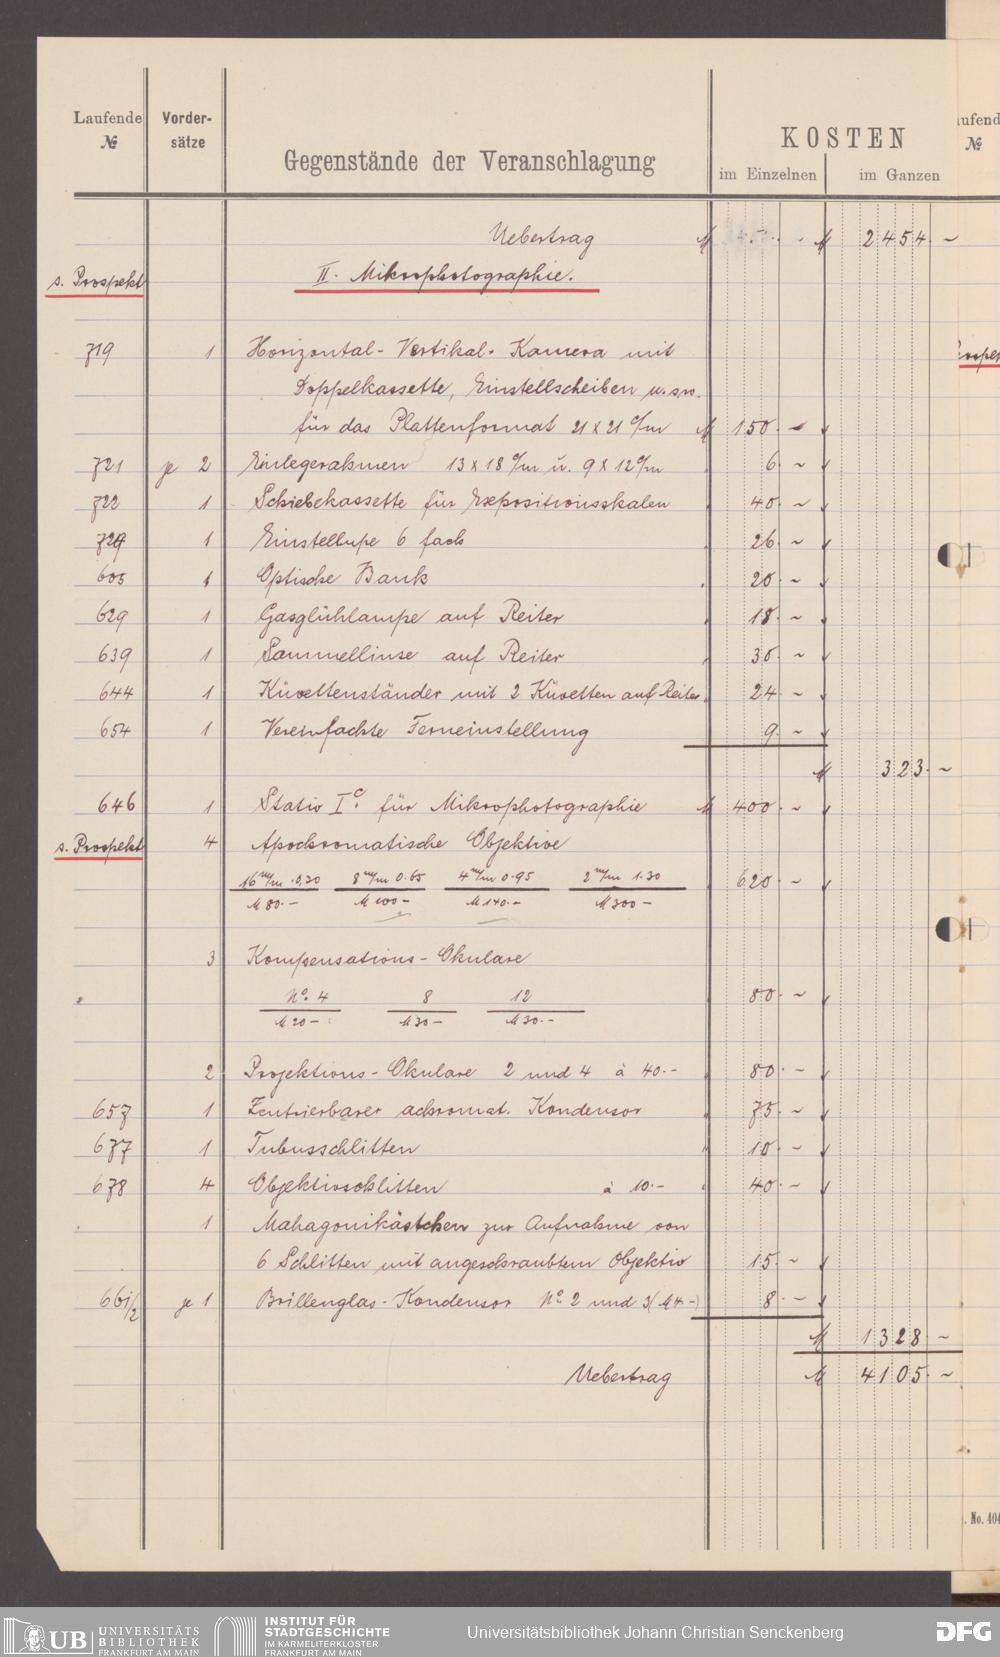 Laufende Vorder- KOSTEN
№ sätze Gegenstände der Veranschlagung im Einzelnen im Ganzen
Uebertrag M M 2454.-
s. Prospekt II. Mikrophotographie.
719 1 Horizontal-Vertikal-Kamera mit
Doppelkassette, Einstellscheiben u.s.w.
für das Plattenformat 21 x 21 c/m M 150.-
721 je 2 Einlegerahmen 13 x 18 c/m u. 9 x 12 c/m 6.-
722 1 Schiebekassette für Expositionsskalen 40.-
729 1 Einstellupe 6 fach 26.-
605 1 Optische Bank 20.-
629 1 Gasglühlampe auf Reiter 18.-
639 1 Sammellinse auf Reiter 30.-
644 1 Küvettenständer mit 2 Küvetten auf Reiter 24.-
654 1 Vereinfachte Ferneinstellung 9.-
M 323.-
646 1 Stativ Ic. für Mikrophotographie M 400.-
s. Prospekt 4 Apochromatische Objektive
16 m/m 0,30 8 m/m 0.65 4 m/m 0.95 2 m/m 1.30 620.-
M 80.- M 100- M 140.- M 300-
3 Kompensations-Okulare
No. 4 8 12 80.-
M 20- M 30- M 30.-
2 Projektions-Okulare 2 und 4 à 40.- 80.-
657 1 Zentrierbarer achromat. Kondensor 75.-
677 1 Tubusschlitten 10.-
678 4 Objektivschlitten à 10.- 40.-
1 Mahagonikästchen zur Aufnahme von
6 Schlitten mit angeschraubtem Objektiv 15.-
661/2 je 1 Brillenglas-Kondensor No. 2 und 3 (M 4-) 8.-
M 1328.-
Uebertrag M 4105.-
aufend
№
. No. 404
UB UNIVERSITÄTS BIBLIOTHEK FRANKFURT AM MAIN
INSTITUT FÜR STADTGESCHICHTE IM KARMELITERKLOSTER FRANKFURT AM MAIN
Universitätsbibliothek Johann Christian Senckenberg
DFG